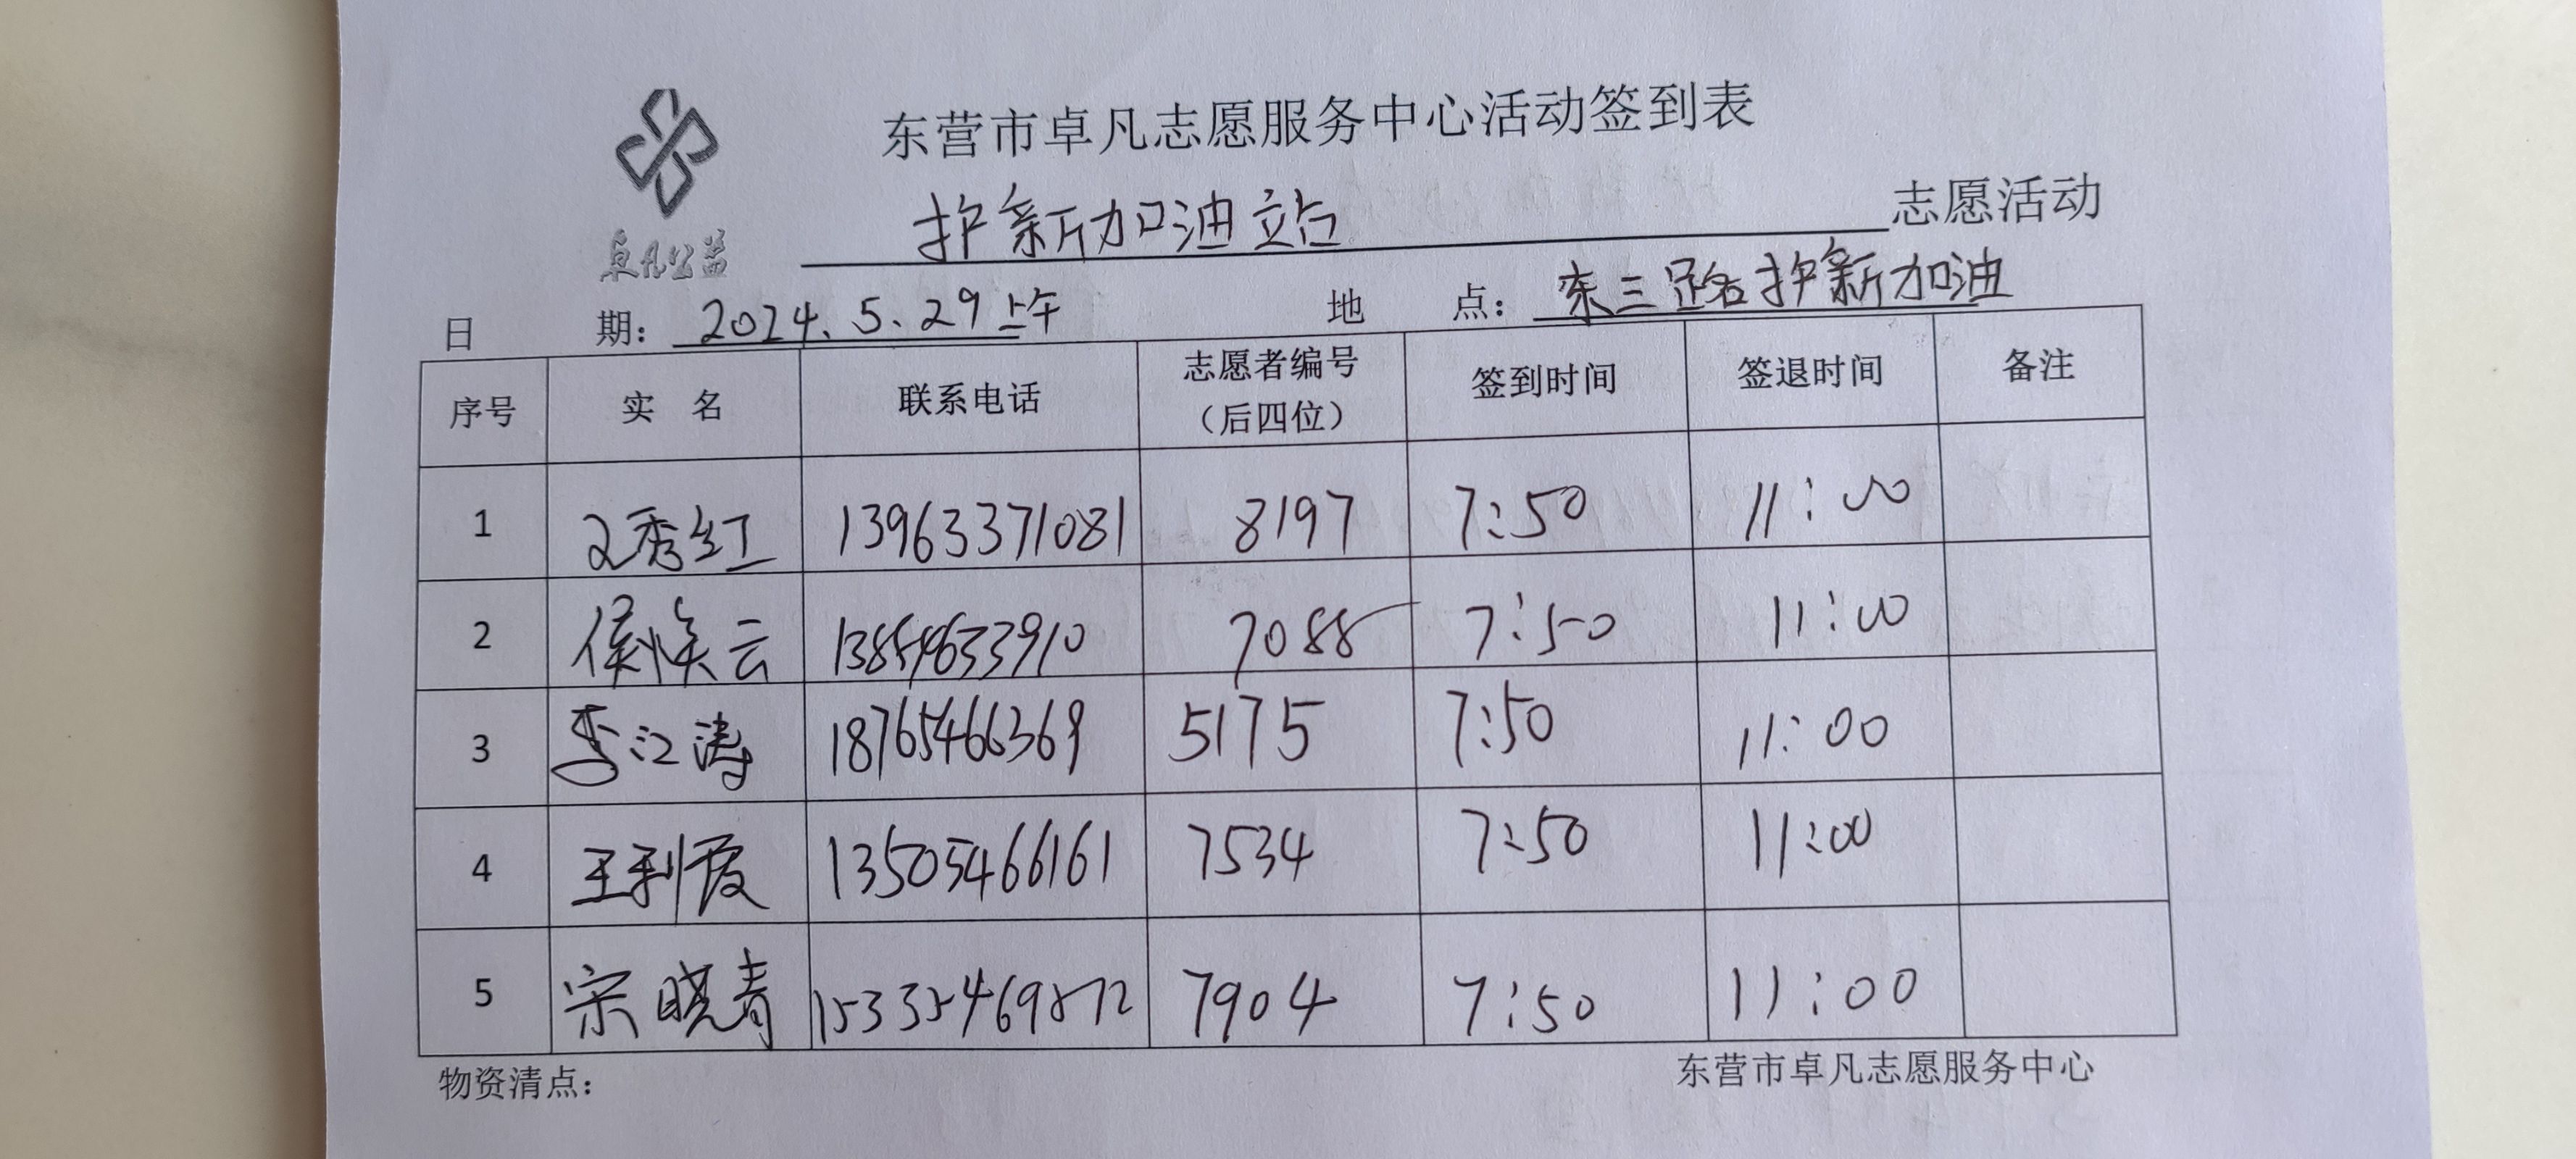 东营市卓凡志愿服务中心活动签到表
护新加油站 志愿活动
卓凡公益
日 期： 2024.5.29上午 地 点： 东三路护新加油
序号 实 名 联系电话 志愿者编号（后四位） 签到时间 签退时间 备注
1 文秀红 13963371081 8197 7:50 11:00
2 侯焕云 13854633910 7088 7:50 11:00
3 李江涛 18765466369 5175 7:50 11:00
4 王利霞 13505466161 7534 7:50 11:00
5 宋晓青 7904 7:50 11:00
物资清点： 东营市卓凡志愿服务中心